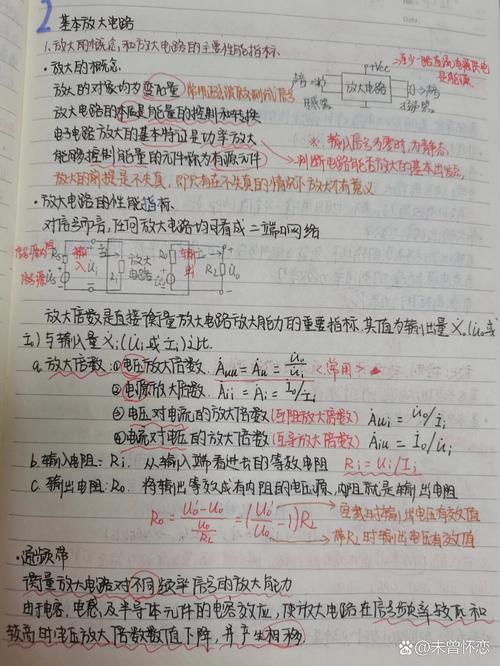 2 基本放大电路
1.放大的概念和放大电路的主要性能指标
·放大的概念
放大的对象均为变化量 常用正弦波做测试信号
放大电路的本质是能量的控制和转换
电子电路放大的基本特征是功率放大
能够控制能量的元件称为有源元件
放大的前提是不失真，即只有在不失真的情况下放大才有意义
+Vcc
至少一路直流电源供电
是能源
放大电路
※ 输入信号为零时，为静态
判断电路能否放大的基本出发点
·放大电路的性能指标
对信号而言，任何放大电路均可看成二端口网络
信号源
输入
放大
电路
输出
Rs
Ri
Ro
RL
U̇o
放大倍数是直接衡量放大电路放大能力的重要指标，其值为输出量Ẋo(U̇o或
İo)与输入量Ẋi(U̇i或İi)之比
a.放大倍数：①电压放大倍数 Ȧuu = Ȧu = U̇o/U̇i 〈常用〉
②电流放大倍数 Ȧii = Ȧi = İo/İi
③电压对电流的放大倍数(互阻放大倍数) Ȧui = U̇o/İi
④电流对电压的放大倍数(互导放大倍数) Ȧiu = İo/U̇i
b.输入电阻：Ri. 从输入端看进去的等效电阻 Ri = Ui/Ii
c.输出电阻：Ro. 将输出等效成有内阻的电压源，内阻就是输出电阻
Ro = (Uo'-Uo)/(Uo/RL) = (Uo'/Uo - 1)RL
空载时输出电压有效值
带RL时输出电压有效值
·通频带
衡量放大电路对不同频率信号的放大能力
由于电容，电感，及半导体元件的电容效应，使放大电路在信号频率较低和
较高时电压放大倍数数值下降，并产生相移
@未曾怀恋